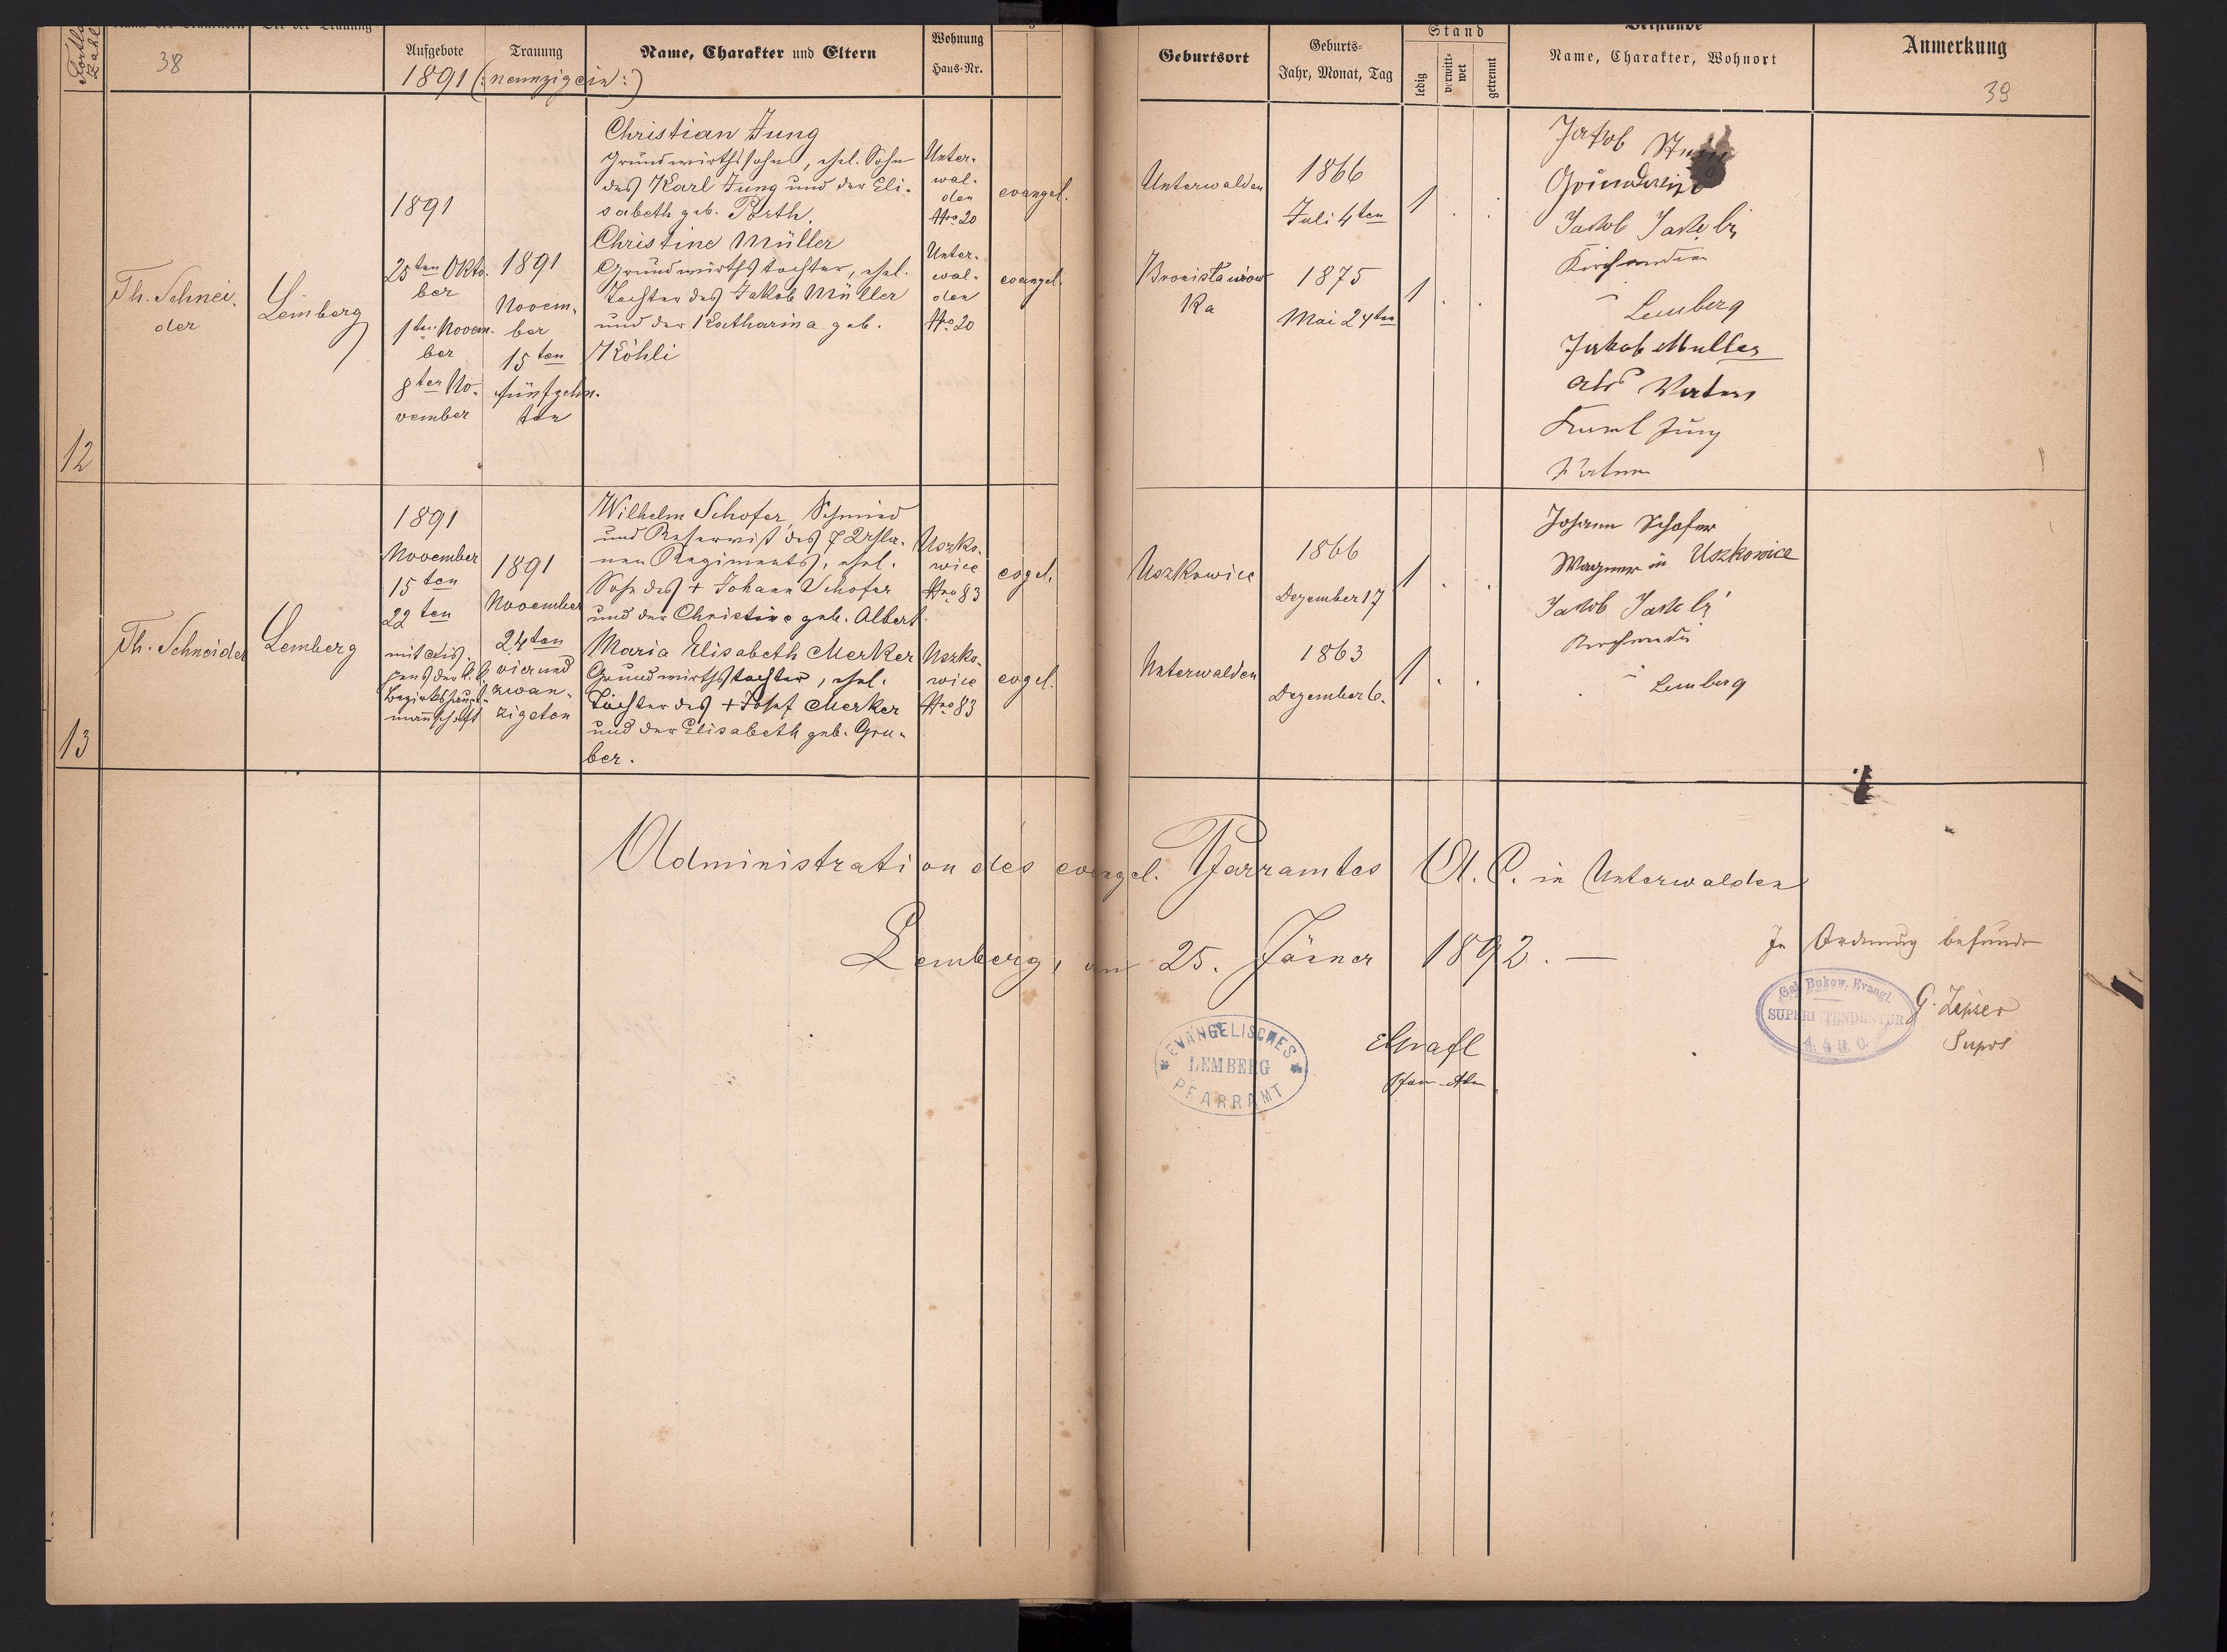 38
Fortl. Zahl
Aufgebote
Trauung
Name, Charakter und Eltern
Wohnung
Haus-Nr.
1891 (: neunzigein :)
Geburtsort
Geburts-
Jahr, Monat, Tag
Stand
ledig
verwitt-
wet
getrennt
Beistände
Name, Charakter, Wohnort
Anmerkung
39
12
Th. Schnei-
der
Lemberg
1891
25ten Okto-
ber
1ten Novem-
ber
8ten No-
vember
1891
Novem-
ber
15ten
fünfzehn-
ten
Christian Jung
Grundwirthssohn, ehel. Sohn
des Karl Jung und der Eli-
sabeth geb. Porth.
Christine Müller
Grundwirthstochter, ehel.
Tochter des Jakob Müller
und der Katharina geb.
Köhli
Unter-
wal-
den
Nro 20
Unter-
wal-
den
No 20
evangel.
evangel.
Unterwalden
Bronisławow
Ka
1866
Juli 4ten
1875
Mai 24ten
1 . .
1 . .
Jakob
Jakob
Lemberg
Jakob Muller
als Vater
Karl Jung
Vater
13
Th. Schneider
Lemberg
1891
November
15ten
22ten
mit Dis-
pens der k.k.
Bezirkshaupt-
mannschaft
1891
November
24ten
vierund
zwan-
zigsten
Wilhelm Schofer, Schmied
und Reservist des 7 Uhla-
nen Regiments, ehel.
Sohn des + Johann Schofer
und der Christine geb. Albert.
Maria Elisabeth Merker
Grundwirthstochter, ehel.
Tochter des + Josef Merker
und der Elisabeth geb. Gru-
ber.
Uszko-
wice
Nro 83
Uszko-
wice
Nro 83
evgel.
evgel.
Uszkowice
Unterwalden
1866
Dezember 17
1863
Dezember 6.
1 . .
1 . .
Johann Schofer
Wagner in Uszkowice
Jakob
Lemberg
Administration des evangel. Pfarramtes A. C. in Unterwalden
Lemberg, am 25. Jänner 1892. —
In Ordnung befunden
EVANGELISCHES
LEMBERG
PFARRAMT
Gal. Bukow. Evangl.
SUPERINTENDENTUR
A. & H. C.